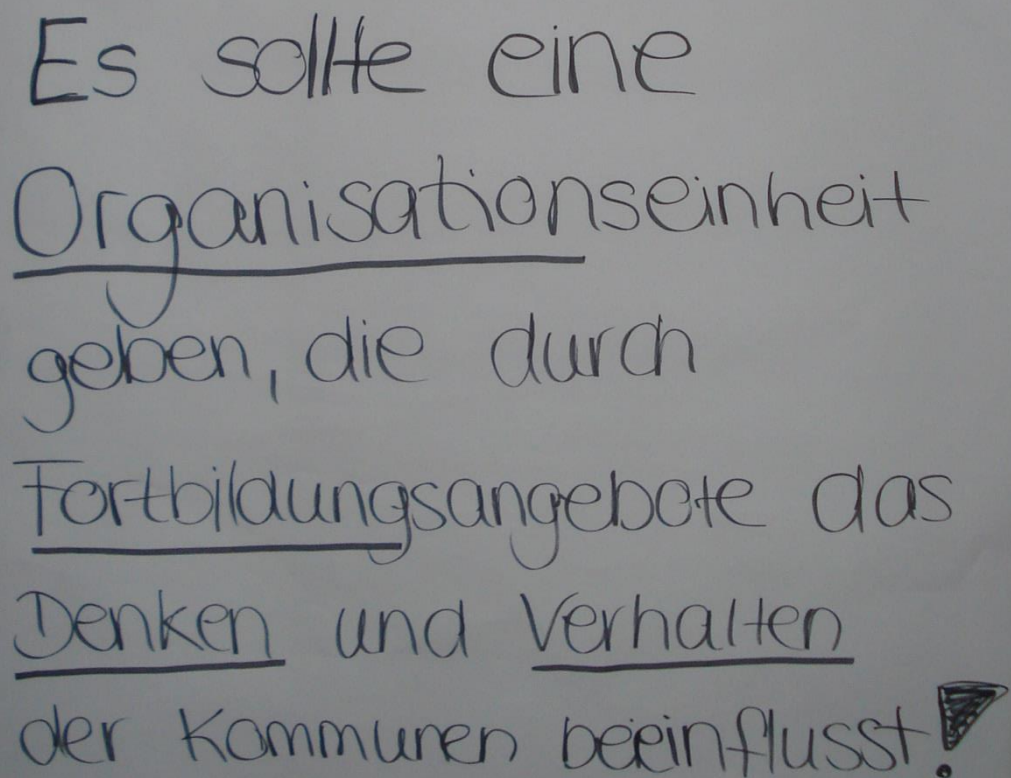 Es sollte eine
Organisationseinheit
geben, die durch
Fortbildungsangebote das
Denken und Verhalten
der Kommunen beeinflusst!